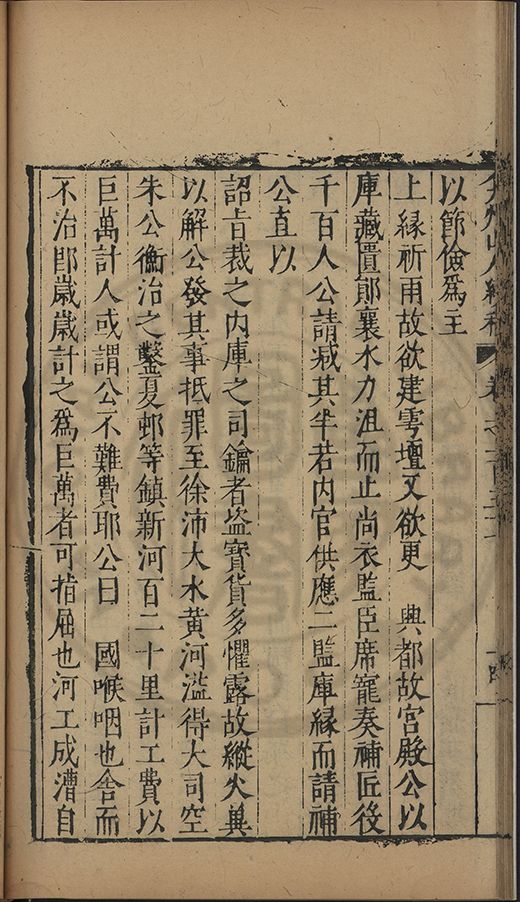 弇州山人續稿 卷之一百三十
以節儉爲主
上縁祈雨故欲建雩壇又欲更 興都故宮殿公以
庫藏匱鄖襄水力沮而止尚衣監臣席寵奏補匠役
千百人公請减其半若内官供應二監庫縁而請補
公直以
詔旨裁之内庫之司鑰者盗寶貨多懼露故縱火兾
以解公發其事抵罪至徐沛大水黄河溢得大司空
朱公衡治之鑿夏邨等鎮新河百二十里計工費以
巨萬計人或謂公不難費耶公曰 國喉咽也舎而
不治即歳歳計之爲巨萬者可指屈也河工成漕自